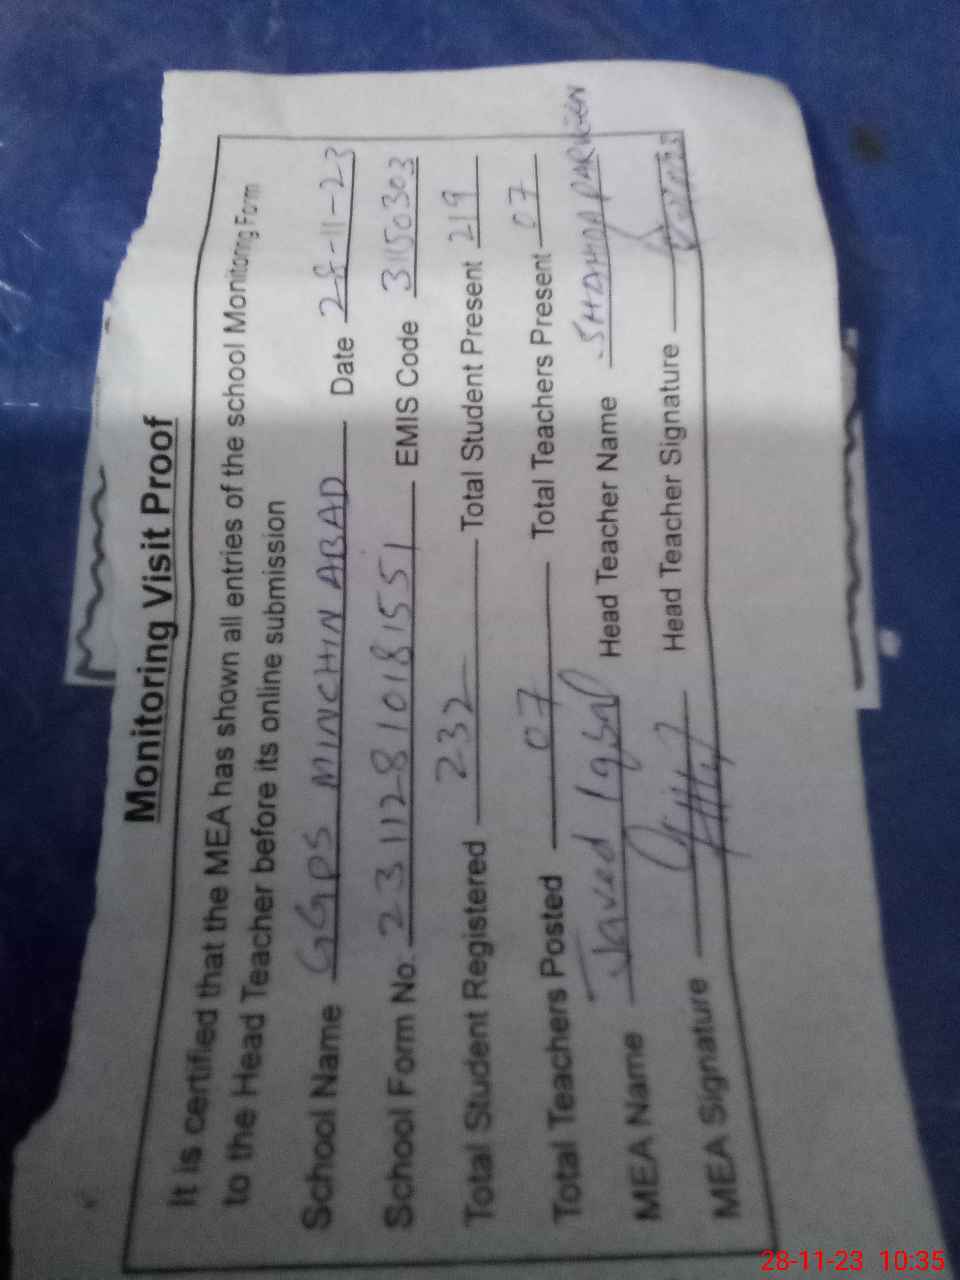 Monitoring Visit Proof
It is certified that the MEA has shown all entries of the school Monitoring Form
to the Head Teacher before its online submission
School Name GGPS MINCHIN ABAD Date 28-11-23
School Form No. 23112810181551 EMIS Code 31150303
Total Student Registered 232 Total Student Present 219
Total Teachers Posted 07 Total Teachers Present 07
MEA Name Javed Iqbal Head Teacher Name SHAHIDA PARVEEN
MEA Signature Head Teacher Signature
28-11-23 10:35